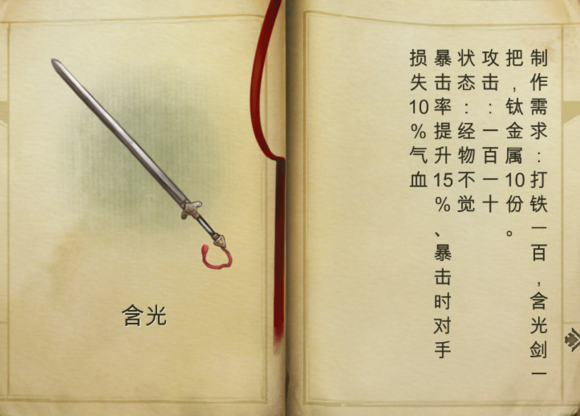 制作需求：打铁一百，含光剑一
把，钛金属10份。
攻击：一百一十
状态：经物不觉
暴击率提升15%、暴击时对手
损失10%气血
含光